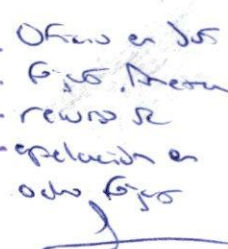 - Oficio en dos
- fojas. Anexa
- recurso de
- apelación en
ocho fojas